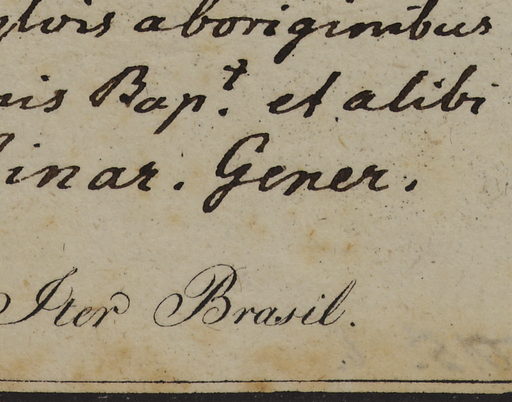 sylvis aboriginibus
nis Bap.t et alibi
inar. Gener.
Iter Brasil.